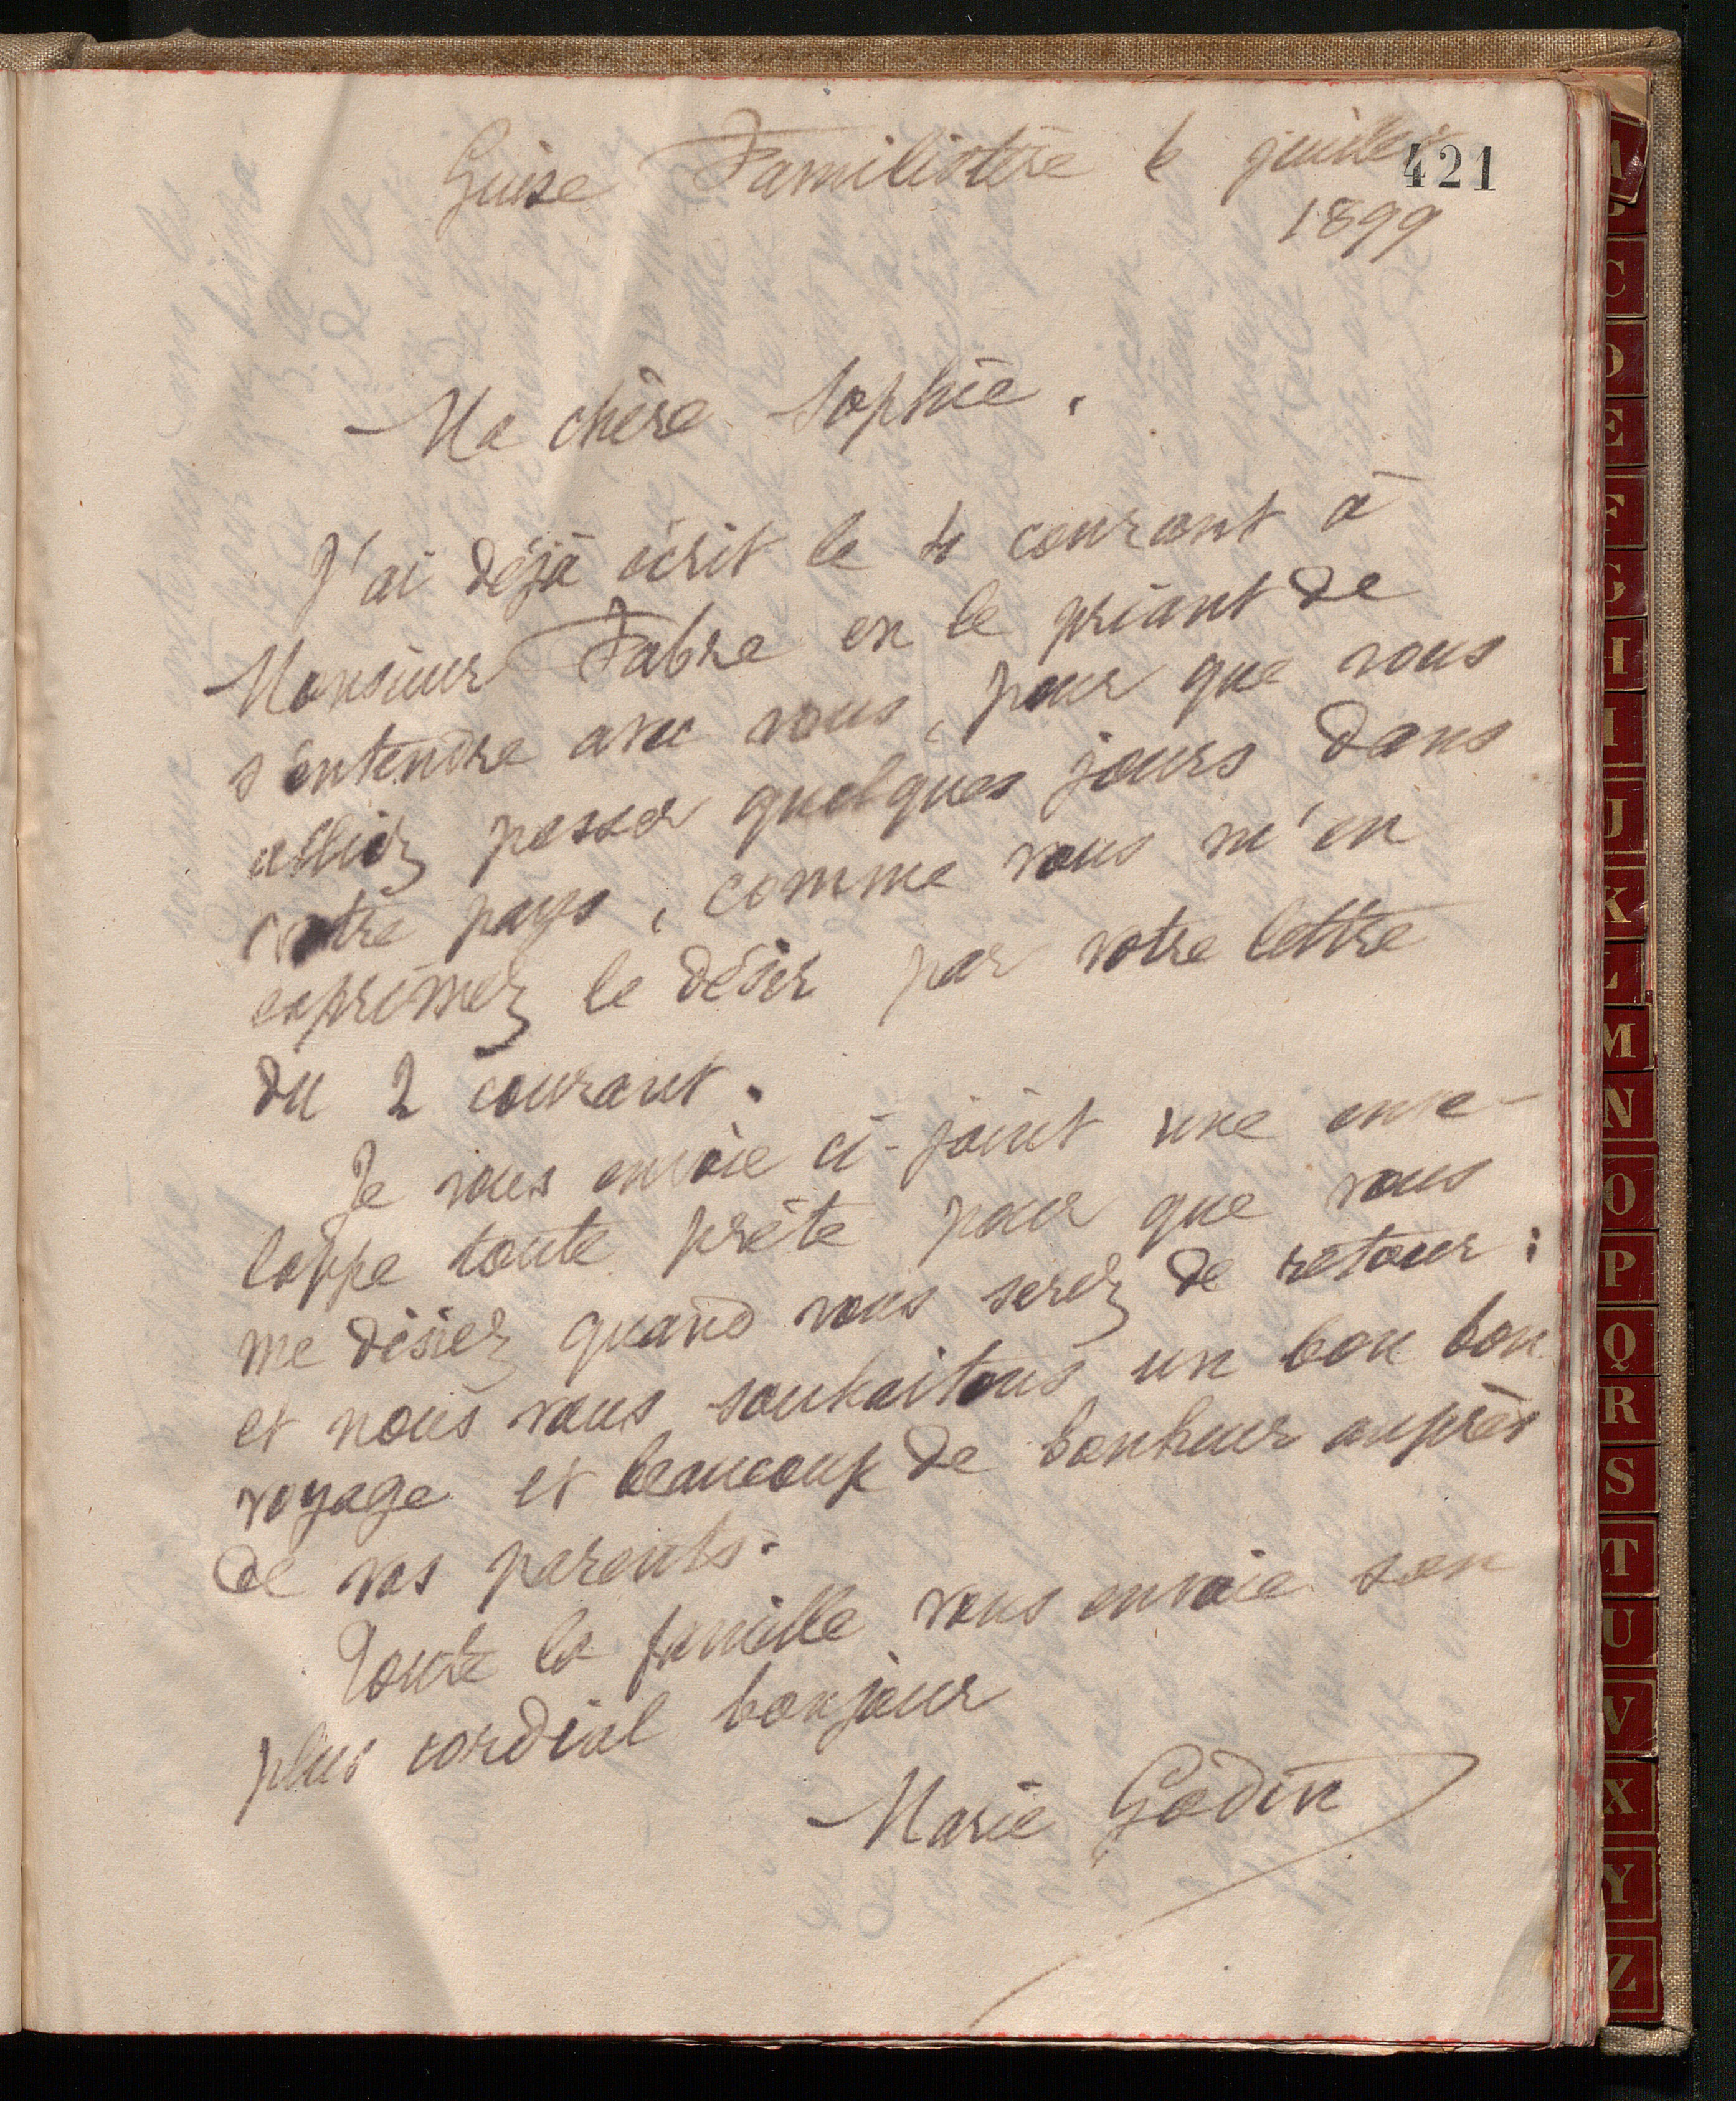 Guise Familistère 6 juillet
421
1899
Ma chère Sophie.
J'ai déjà écrit le 4 courant à
Monsieur Fabre en le priant de
s'entendre avec vous, pour que vous
alliez passer quelques jours dans
votre pays, comme vous m'en
exprimez le désir par votre lettre
du 2 courant.
Je vous envoie ci-joint une enve-
loppe toute prête pour que vous
me disiez quand vous serez de retour ;
et nous vous souhaitons un bon bon
voyage et beaucoup de bonheur auprès
de vos parents.
Toute la famille vous envoie son
plus cordial bonjour
Marie Godin
A
C
D
E
F
G
H
I
J
K
L
M
N
O
P
Q
R
S
T
U
V
X
Y
Z